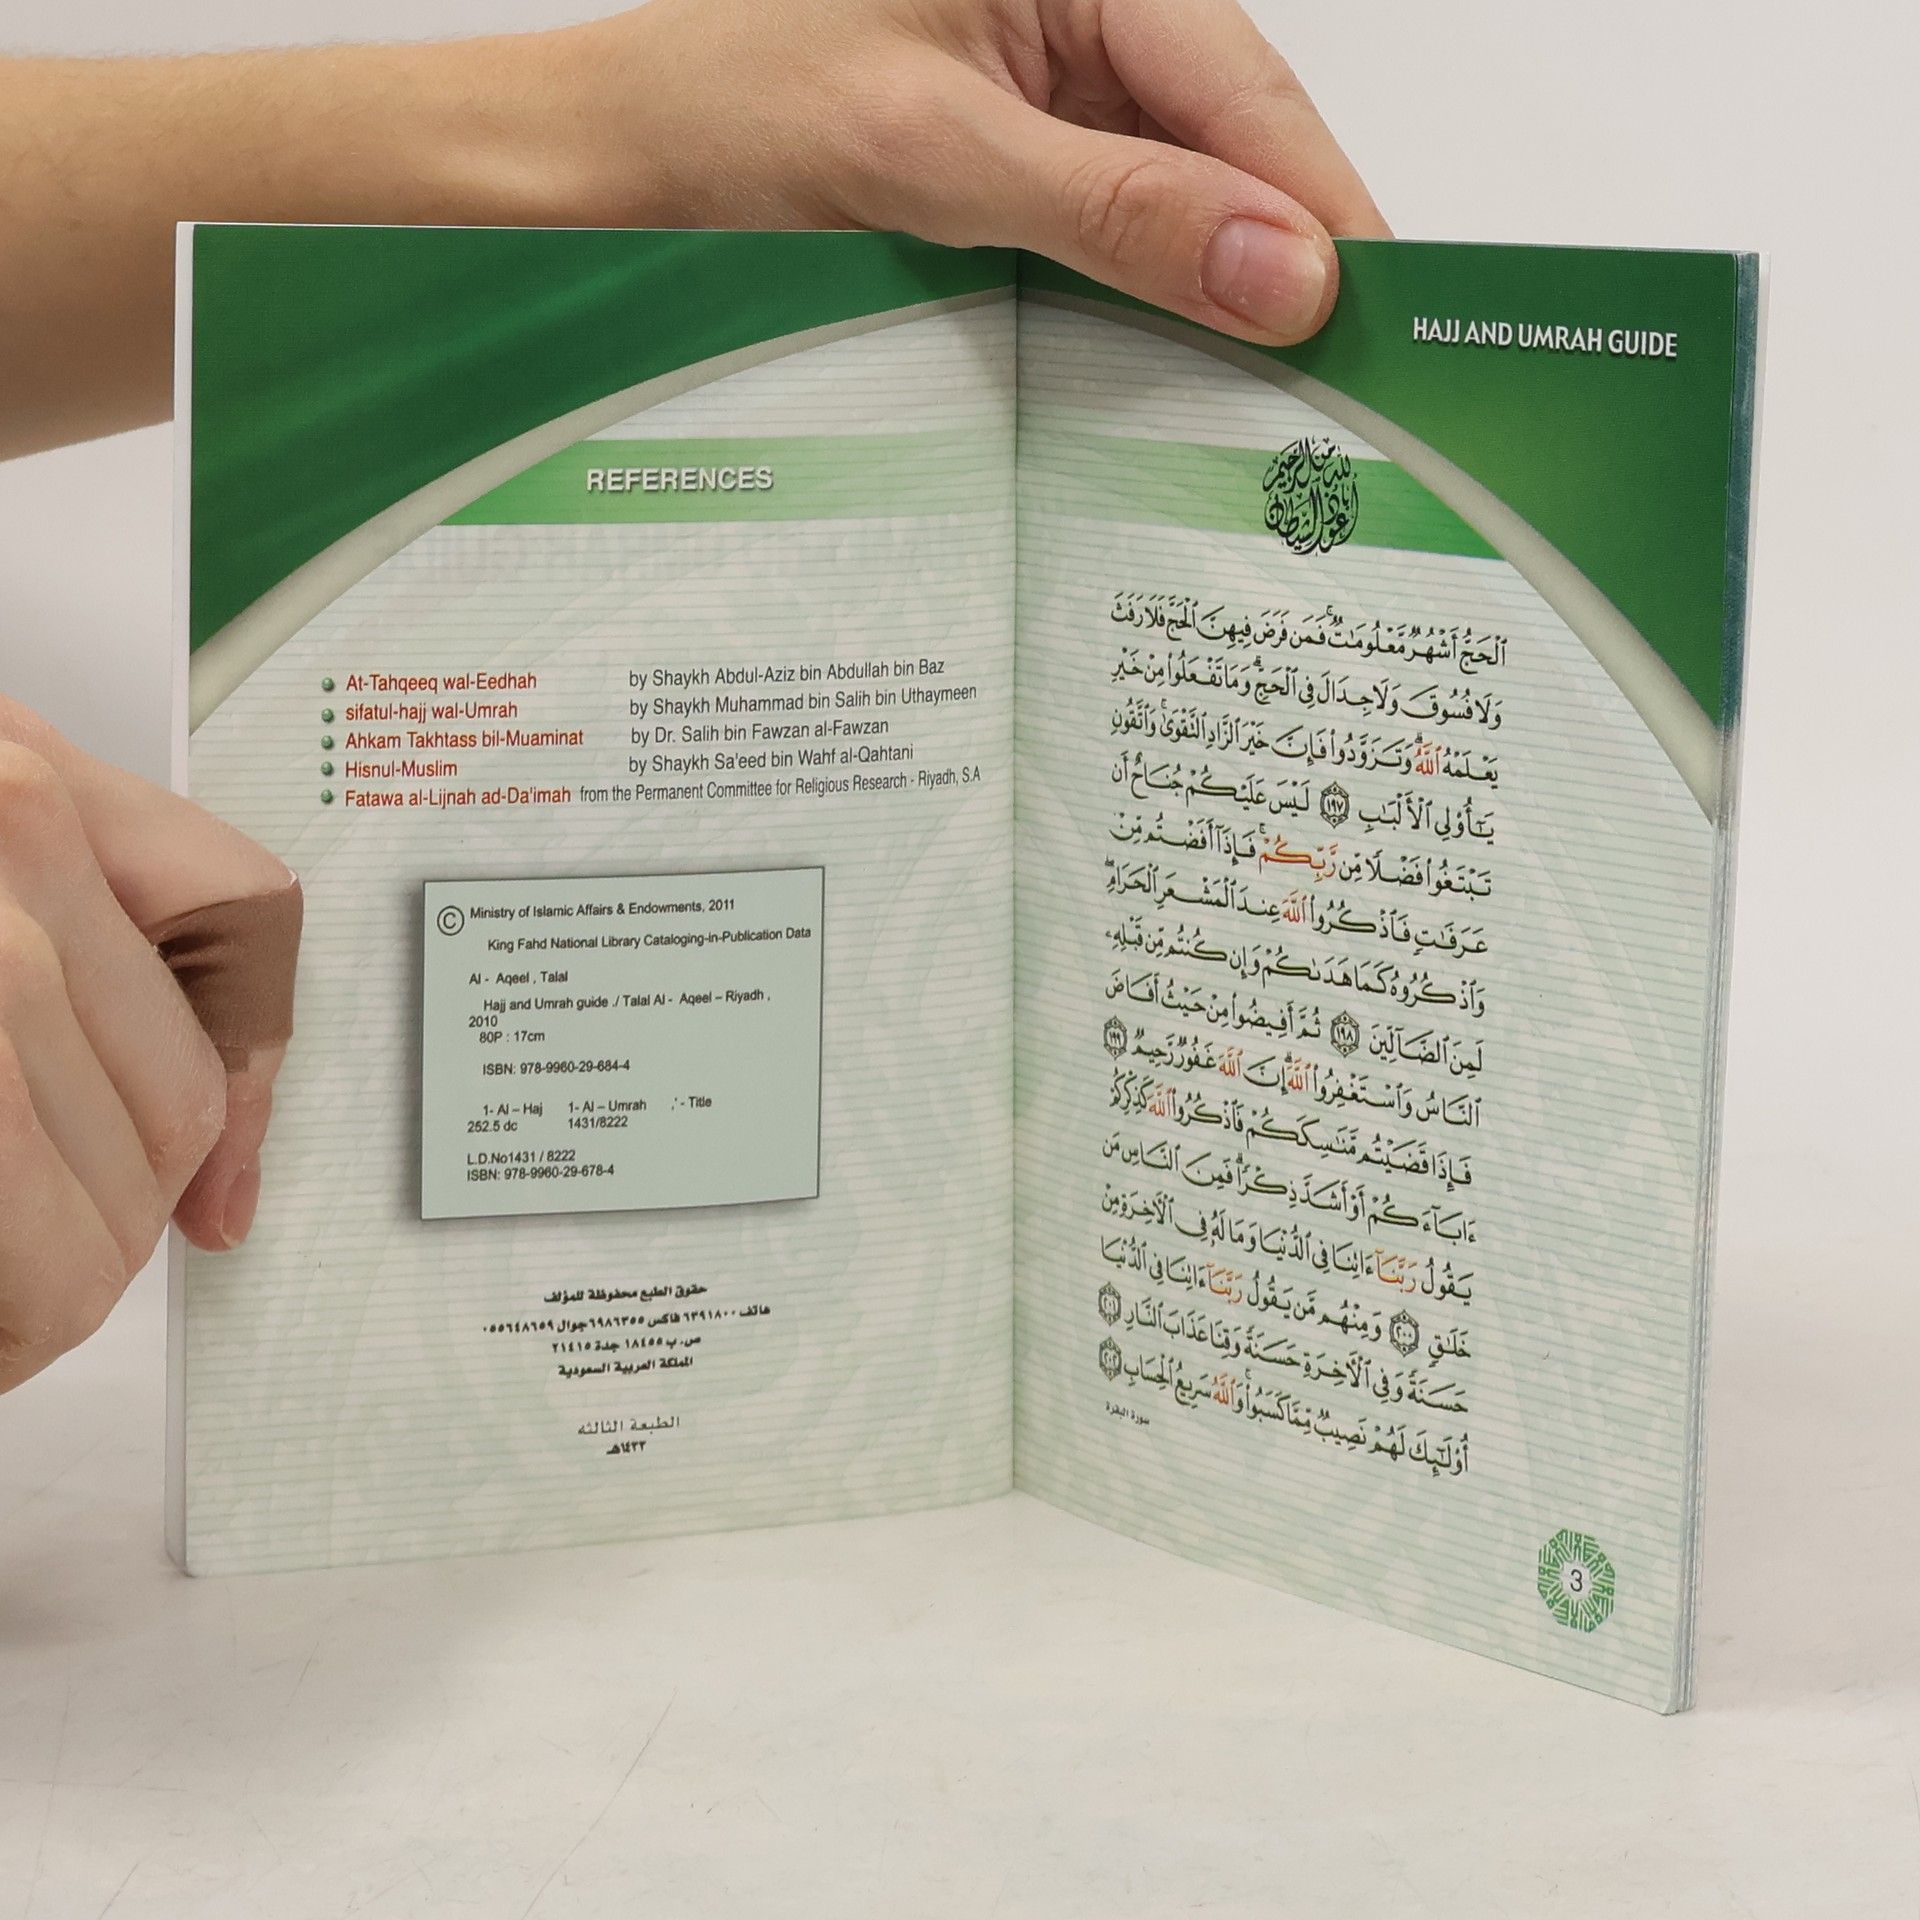 REFERENCES
At-Tahqeeq wal-Eedhah by Shaykh Abdul-Aziz bin Abdullah bin Baz
sifatul-hajj wal-Umrah by Shaykh Muhammad bin Salih bin Uthaymeen
Ahkam Takhtass bil-Muaminat by Dr. Salih bin Fawzan al-Fawzan
Hisnul-Muslim by Shaykh Sa'eed bin Wahf al-Qahtani
Fatawa al-Lijnah ad-Da'imah from the Permanent Committee for Religious Research - Riyadh, S.A
© Ministry of Islamic Affairs & Endowments, 2011
King Fahd National Library Cataloging-in-Publication Data
Al - Aqeel , Talal
Hajj and Umrah guide ./ Talal Al - Aqeel – Riyadh ,
2010
80P : 17cm
ISBN: 978-9960-29-684-4
1- Al – Haj 1- Al – Umrah ,' - Title
252.5 dc 1431/8222
L.D.No1431 / 8222
ISBN: 978-9960-29-678-4
حقوق الطبع محفوظة للمؤلف
هاتف ٦٣٩١٨٠٠ فاكس ٦٩٨٦٣٥٥ جوال ٠٥٥٦٤٨٦٥٩
ص.ب ١٨٤٥٥ جدة ٢١٤١٥
المملكة العربية السعودية
الطبعة الثالثه
١٤٣٣هـ
HAJJ AND UMRAH GUIDE
أعوذ بالله من الشيطان الرجيم
ٱلْحَجُّ أَشْهُرٌ مَّعْلُومَٰتٌ ۚ فَمَن فَرَضَ فِيهِنَّ ٱلْحَجَّ فَلَا رَفَثَ
وَلَا فُسُوقَ وَلَا جِدَالَ فِى ٱلْحَجِّ ۗ وَمَا تَفْعَلُوا۟ مِنْ خَيْرٍ
يَعْلَمْهُ ٱللَّهُ ۗ وَتَزَوَّدُوا۟ فَإِنَّ خَيْرَ ٱلزَّادِ ٱلتَّقْوَىٰ ۚ وَٱتَّقُونِ
يَٰٓأُو۟لِى ٱلْأَلْبَٰبِ ١٩٧ لَيْسَ عَلَيْكُمْ جُنَاحٌ أَن
تَبْتَغُوا۟ فَضْلًا مِّن رَّبِّكُمْ ۚ فَإِذَآ أَفَضْتُم مِّنْ
عَرَفَٰتٍ فَٱذْكُرُوا۟ ٱللَّهَ عِندَ ٱلْمَشْعَرِ ٱلْحَرَامِ ۖ
وَٱذْكُرُوهُ كَمَا هَدَىٰكُمْ وَإِن كُنتُم مِّن قَبْلِهِۦ
لَمِنَ ٱلضَّآلِّينَ ١٩٨ ثُمَّ أَفِيضُوا۟ مِنْ حَيْثُ أَفَاضَ
ٱلنَّاسُ وَٱسْتَغْفِرُوا۟ ٱللَّهَ ۚ إِنَّ ٱللَّهَ غَفُورٌ رَّحِيمٌ ١٩٩
فَإِذَا قَضَيْتُم مَّنَٰسِكَكُمْ فَٱذْكُرُوا۟ ٱللَّهَ كَذِكْرِكُمْ
ءَابَآءَكُمْ أَوْ أَشَدَّ ذِكْرًا ۗ فَمِنَ ٱلنَّاسِ مَن
يَقُولُ رَبَّنَآ ءَاتِنَا فِى ٱلدُّنْيَا وَمَا لَهُۥ فِى ٱلْءَاخِرَةِ مِنْ
خَلَٰقٍ ٢٠٠ وَمِنْهُم مَّن يَقُولُ رَبَّنَآ ءَاتِنَا فِى ٱلدُّنْيَا
حَسَنَةً وَفِى ٱلْءَاخِرَةِ حَسَنَةً وَقِنَا عَذَابَ ٱلنَّارِ ٢٠١
أُو۟لَٰٓئِكَ لَهُمْ نَصِيبٌ مِّمَّا كَسَبُوا۟ ۚ وَٱللَّهُ سَرِيعُ ٱلْحِسَابِ ٢٠٢
سورة البقرة
3